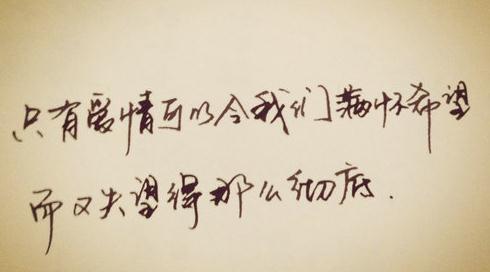 只有爱情可以令我们满怀希望
而又失望得那么彻底.